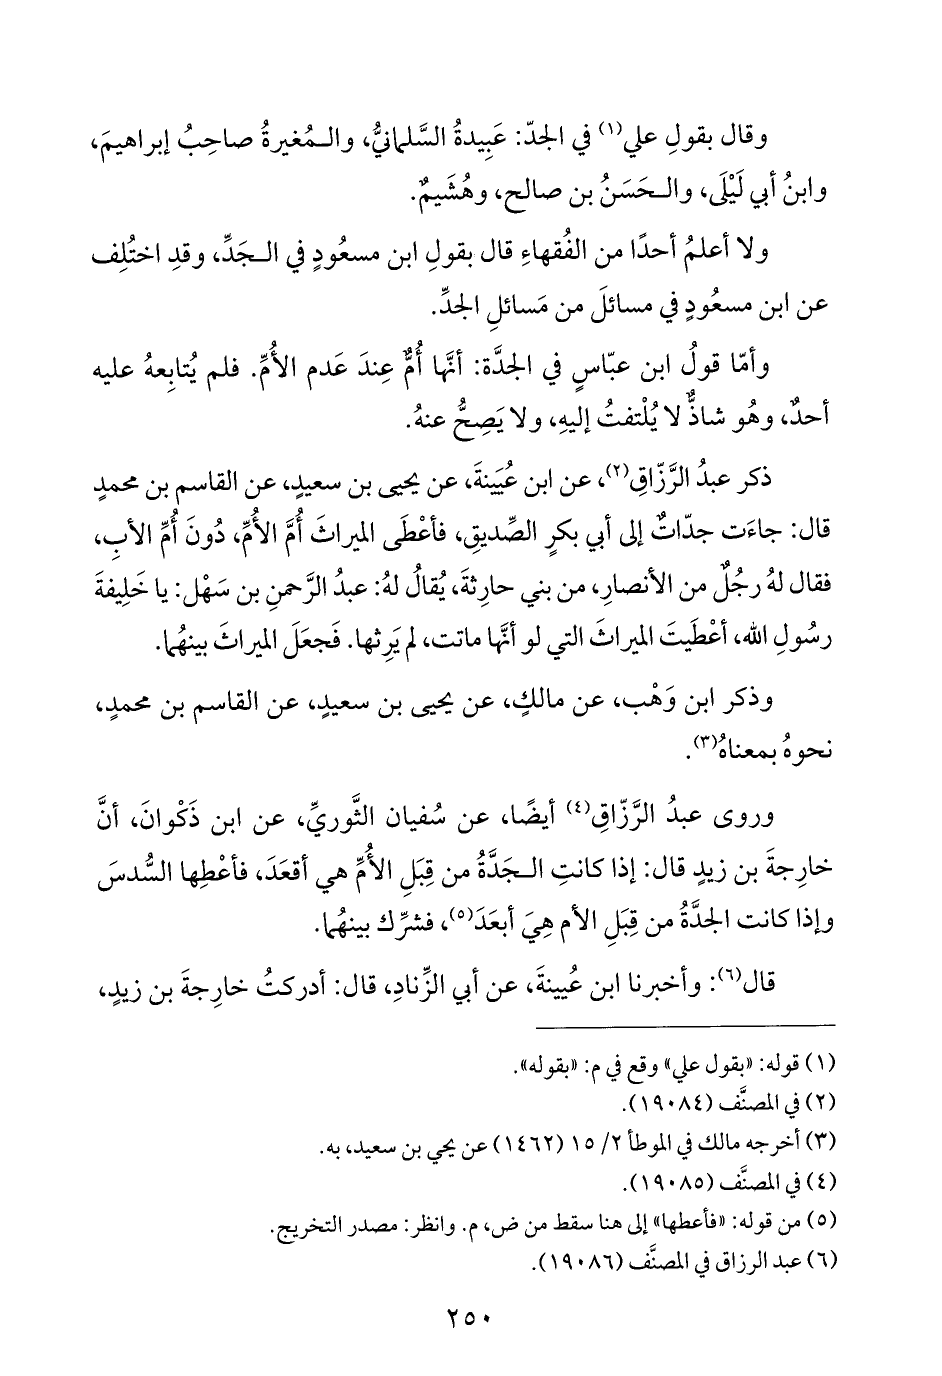 وقال بقولِ علي(١) في الجدّ: عَبِيدةُ السَّلمانيُّ، والـمُغيرةُ صاحِبُ إبراهيمَ،
وابنُ أبي لَيْلَى، والـحَسَنُ بن صالح، وهُشَيمٌ.
ولا أعلمُ أحدًا من الفُقهاءِ قال بقولِ ابن مسعُودٍ في الـجَدِّ، وقدِ اختُلِف
عن ابن مسعُودٍ في مسائلَ من مَسائلِ الجدِّ.
وأمّا قولُ ابن عبّاسٍ في الجدَّة: أنَّها أُمٌّ عِندَ عَدم الأُمِّ. فلم يُتابِعهُ عليه
أحدٌ، وهُو شاذٌّ لا يُلْتفتُ إليهِ، ولا يَصِحُّ عنهُ.
ذكر عبدُ الرَّزّاقِ(٢)، عن ابن عُيَينةَ، عن يحيى بن سعيدٍ، عن القاسم بن محمدٍ
قال: جاءَت جدّاتٌ إلى أبي بكرٍ الصِّديقِ، فأعْطَى الميراثَ أُمَّ الأُمِّ، دُونَ أُمِّ الأبِ،
فقال لهُ رجُلٌ من الأنصارِ، من بني حارِثةَ، يُقالُ لهُ: عبدُ الرَّحمنِ بن سَهْل: يا خَلِيفةَ
رسُولِ الله، أعْطَيتَ الميراثَ التي لو أنَّها ماتت، لم يَرِثها. فَجعَلَ الميراثَ بينهُما.
وذكر ابن وَهْب، عن مالكٍ، عن يحيى بن سعيدٍ، عن القاسم بن محمدٍ،
نحوهُ بمعناهُ(٣).
وروى عبدُ الرَّزّاقِ(٤) أيضًا، عن سُفيان الثَّوريِّ، عن ابن ذَكْوانَ، أنَّ
خارِجةَ بن زيدٍ قال: إذا كانتِ الـجَدَّةُ من قِبَلِ الأُمِّ هي أقعَدَ، فأعْطِها السُّدسَ
وإذا كانت الجدَّةُ من قِبَلِ الأم هِيَ أبعَدَ(٥)، فشرِّك بينهُما.
قال(٦): وأخبرنا ابن عُيينةَ، عن أبي الزِّنادِ، قال: أدركتُ خارِجةَ بن زيدٍ،
(١) قوله: «بقول علي» وقع في م: «بقوله».
(٢) في المصنَّف (١٩٠٨٤).
(٣) أخرجه مالك في الموطأ ٢/ ١٥ (١٤٦٢) عن يحيي بن سعيد، به.
(٤) في المصنَّف (١٩٠٨٥).
(٥) من قوله: «فأعطها» إلى هنا سقط من ض، م. وانظر: مصدر التخريج.
(٦) عبد الرزاق في المصنَّف (١٩٠٨٦).
٢٥٠